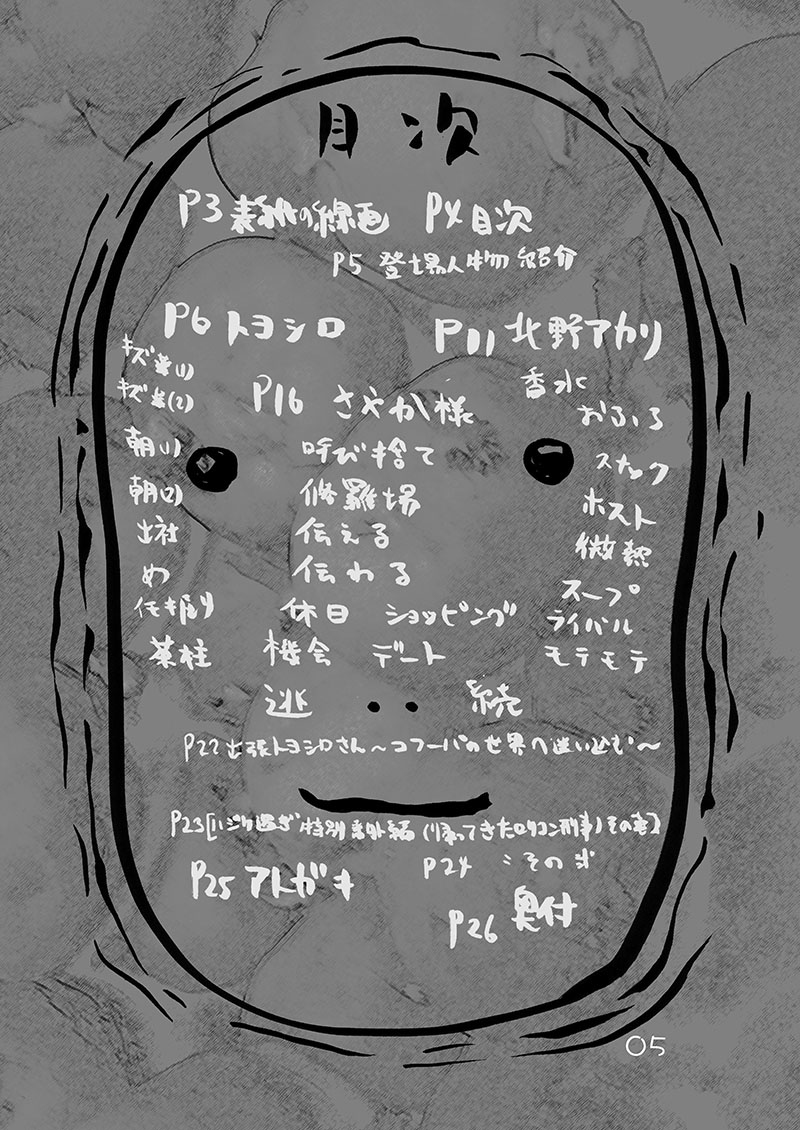 目次
P3 表紙の線画 P4 目次
P5 登場人物紹介
P6 トヨシロ
キズ 並(1)
キズ 並(2)
朝(1)
朝(2)
出社
め
茶柱
P11 北野アカリ
香水
おふろ
スナック
ホスト
微熱
スープ
ライバル
モテモテ
P16 さやか様
呼び捨て
修羅場
伝える
伝わる
休日 ショッピング
機会 デート
逃 続
P22 出張トヨシロさん～コフーパの世界へ迷い込む～
P23 [いジり過ぎ特別番外編 (帰ってきたロリコン刑事) その壱]
P24 〃その弐
P25 アトガキ
P26 奥付
05